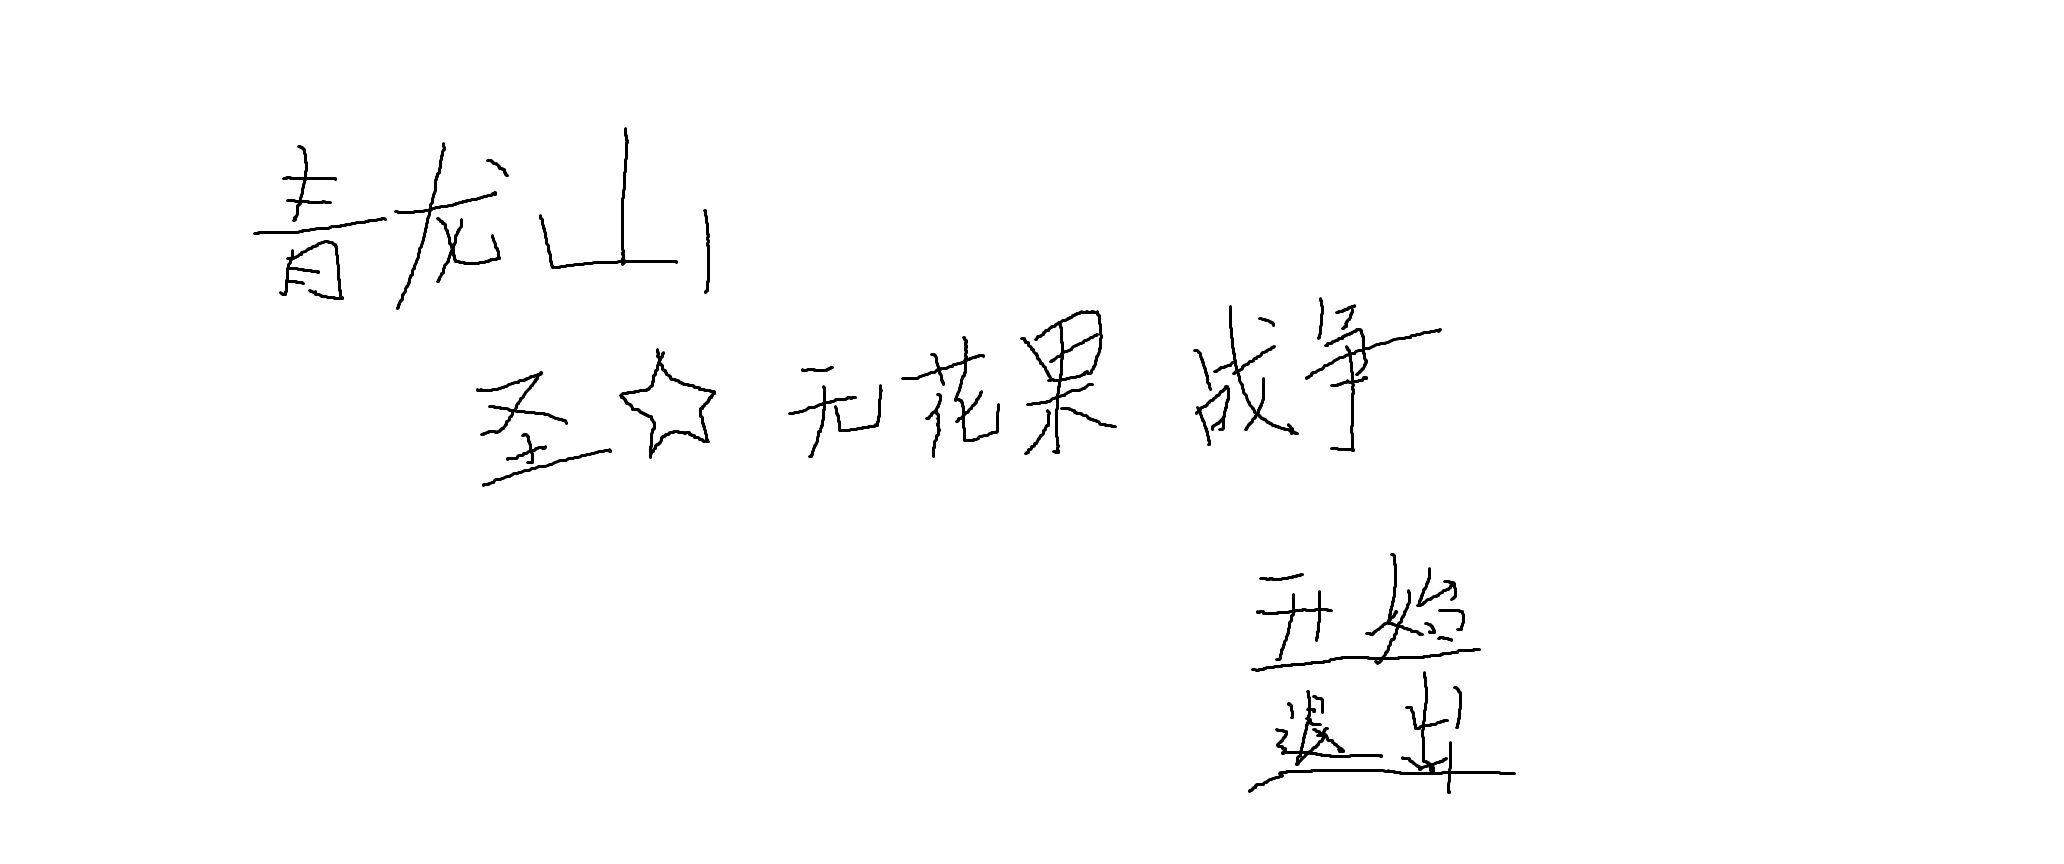 青龙山
圣☆无花果战争
开始
退出